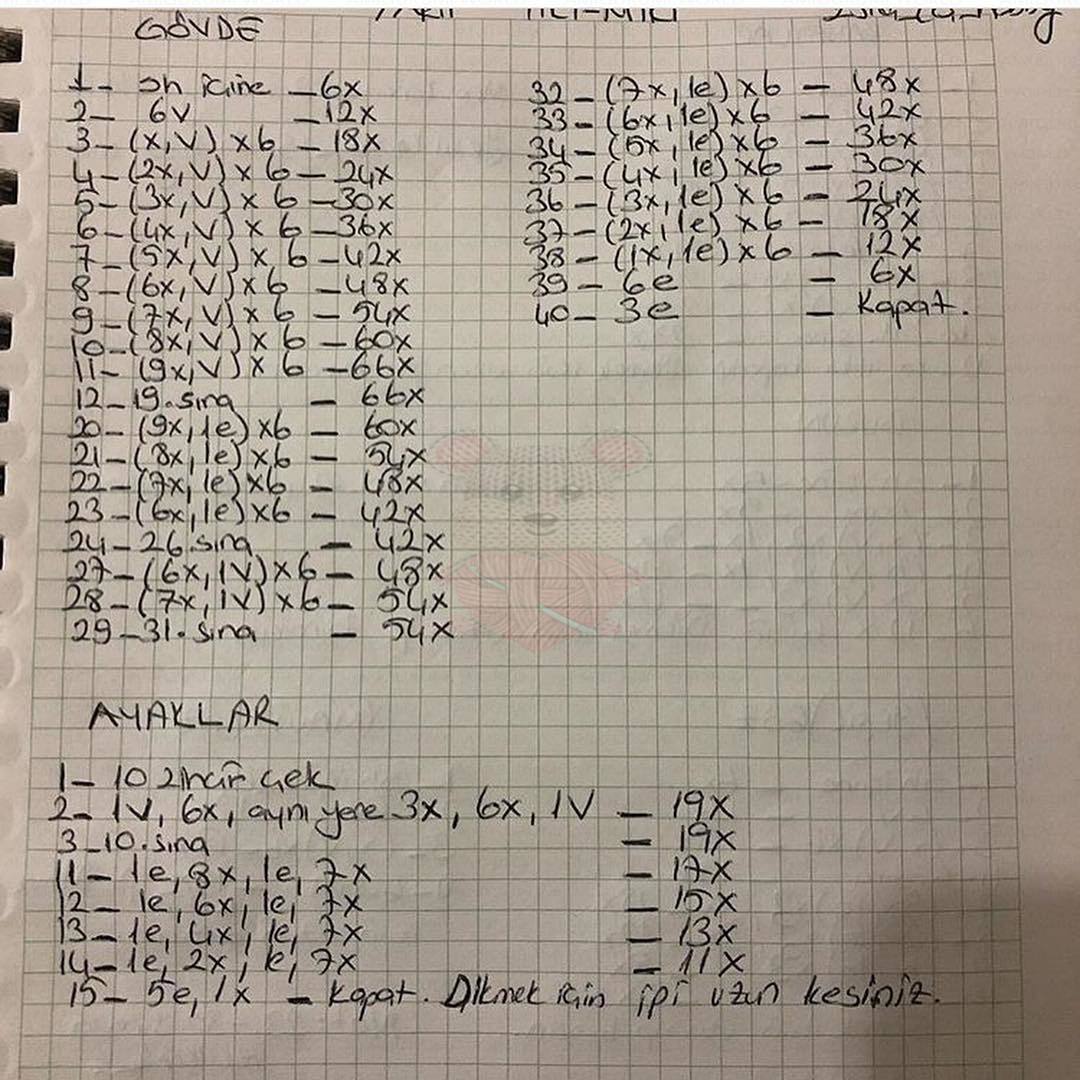 GÖVDE
1- sh içine - 6x
2- 6V - 12x
3- (x, V) x6 - 18x
4- (2x, V) x 6 - 24x
5- (3x, V) x 6 - 30x
6- (4x, V) x 6 - 36x
7- (5x, V) x 6 - 42x
8- (6x, V) x 6 - 48x
9- (7x, V) x 6 - 54x
10- (8x, V) x 6 - 60x
11- (9x, V) x 6 - 66x
12-19. sıra - 66x
20- (9x, 1e) x6 - 60x
21- (8x, 1e) x6 - 54x
22- (7x, 1e) x6 - 48x
23- (6x, 1e) x6 - 42x
24-26. sıra - 42x
27- (6x, 1V) x 6 - 48x
28- (7x, 1V) x 6 - 54x
29-31. sıra - 54x
32- (7x, 1e) x 6 - 48x
33- (6x, 1e) x 6 - 42x
34- (5x, 1e) x 6 - 36x
35- (4x, 1e) x 6 - 30x
36- (3x, 1e) x 6 - 24x
37- (2x, 1e) x 6 - 18x
38- (1x, 1e) x 6 - 12x
39- 6e - 6x
40- 3e - Kapat.
AYAKLAR
1- 10 zincir çek
2- 1V, 6x, aynı yere 3x, 6x, 1V - 19x
3-10. sıra - 19x
11- 1e, 8x, 1e, 7x - 17x
12- 1e, 6x, 1e, 7x - 15x
13- 1e, 4x, 1e, 7x - 13x
14- 1e, 2x, 1e, 7x - 11x
15- 5e, 1x - Kapat. Dikmek için ipi uzun kesiniz.